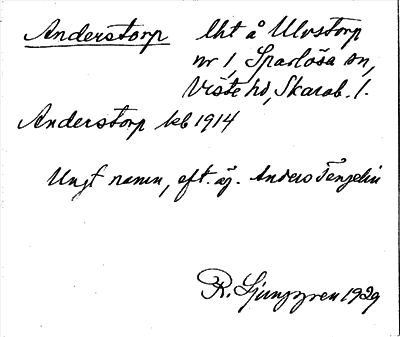 Anderstorp lht å Ulvstorp
nr 1, Sparlösa sn,
Viste hd, Skarab. l.
Anderstorp kb 1914
Ungt namn, eft. äg. Anders Tengelin
R. Ljunggren 1929